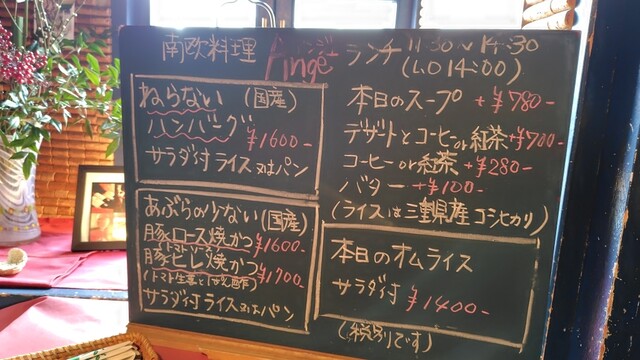 南欧料理 Ange アンジュ ランチ 11:30〜14:30
(LO 14:00)
ねらない (国産)
ハンバーグ ¥1600-
サラダ付 ライス 又はパン
あぶらの少ない (国産)
豚ロース焼かつ ¥1600-
豚ヒレ焼かつ ¥1700-
サラダ付 ライス 又はパン
本日のスープ +¥780-
デザートとコーヒーor紅茶 +¥700-
コーヒーor紅茶 +¥280-
バター +¥100-
(ライスは三重県産コシヒカリ)
本日のオムライス
サラダ付 ¥1400-
(税別です)